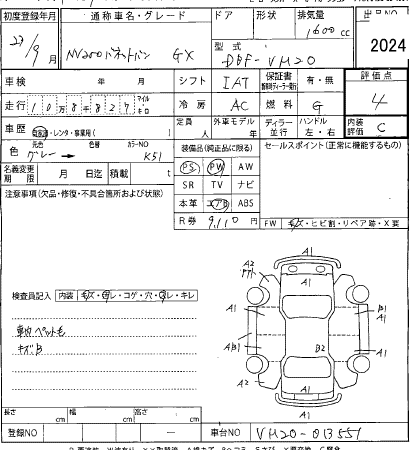 初度登録年月 通称車名・グレード ドア 形状 排気量 出品No
27/9月 NV200バネットバン GX 1600cc
型式 DBF-VM20 2024
車検 年 月 シフト IAT 保証書 有・無 評価点
走行 10万8482 マイル キロ 冷房 AC 燃料 G 4
車歴 自家用・レンタ・事業用( ) 定員 人 外車モデル 年 ディーラー 並行 ハンドル 左・右 内装評価 C
色 元色 グレー→ 色替 カラーNO K51 装備品(純正品に限る) セールスポイント(正常に機能するもの)
PS PW AW
名義変更期限 月 日迄 積載 t SR TV ナビ
注意事項(欠品・修復・不具合箇所および状態) 本革 エアB ABS
R券 9,110円 FW キズ・ヒビ割・リペア跡・X要
A1
A2
A1
検査員記入 内装 キズ・汚レ・コゲ・穴・スレ・キレ
A1 B1
A1
車内ペット毛
キズB
AB1 B2 A1
A2 A2
A1
長さ cm 幅 cm 高さ cm
登録NO ― 車台NO VM20-013551